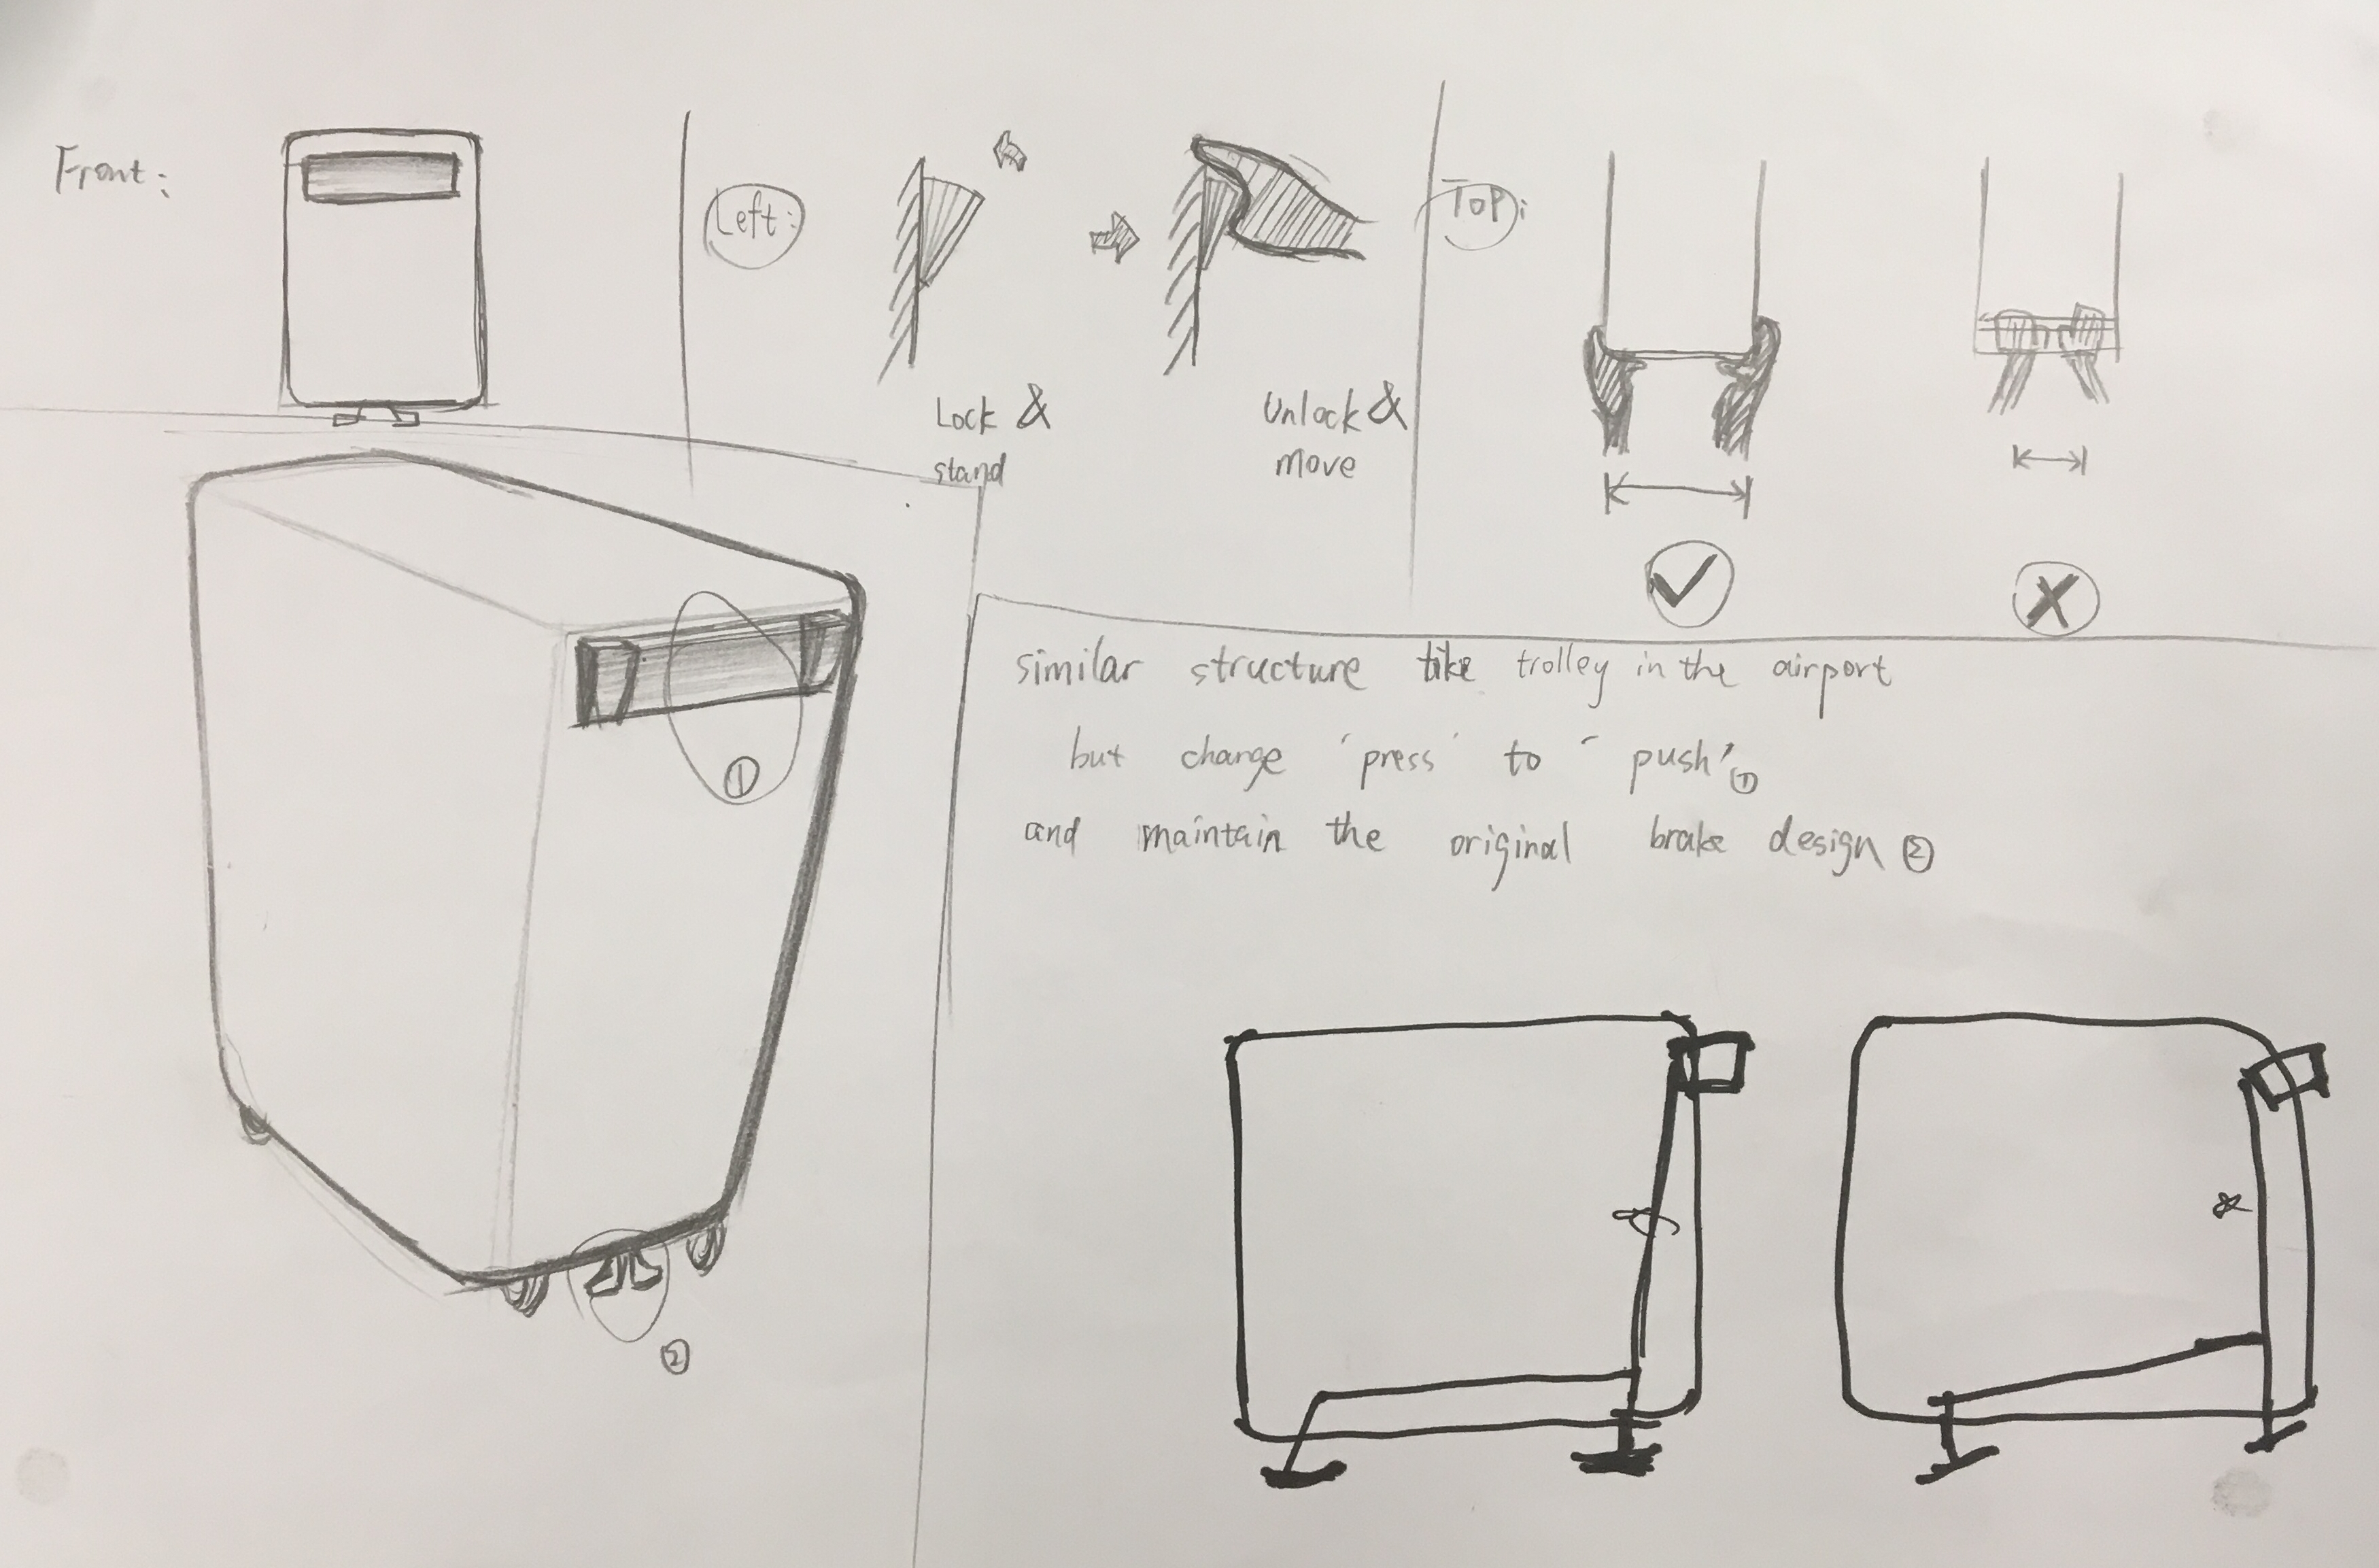 Front:
Left:
Lock &
stand
Unlock &
move
Top:
similar structure like trolley in the airport
but change 'press' to 'push' ①
and maintain the original brake design ②
①
②